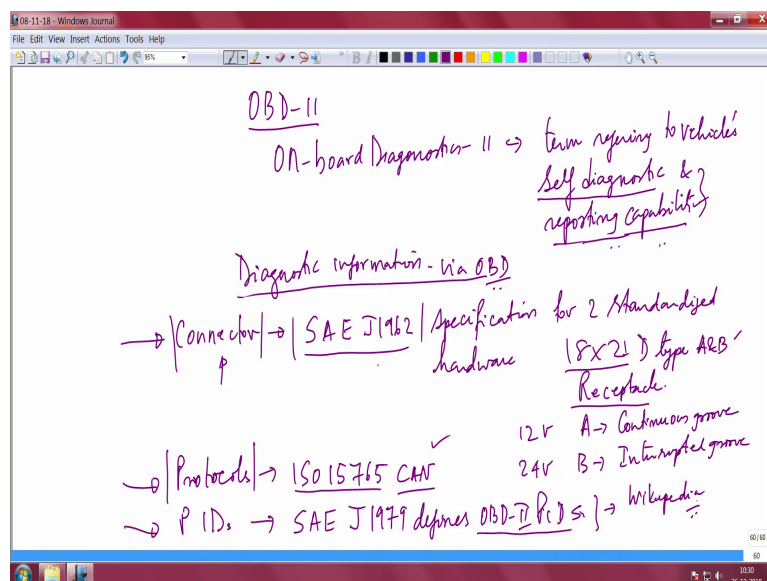 08-11-18 - Windows Journal
File Edit View Insert Actions Tools Help
95%
B I
OBD-II
ON-board Diagonostics-II → term refering to vehicle's
Self diagnostic &
reporting capability
Diagnostic information - via OBD
→ Connector → SAE J1962 specification for 2 standardized
hardware
(8X2) D type A&B ✓
Receptacle.
12V A → Continuous groove
→ Protocols → ISO 15765 CAN ✓
24V B → Interrupted groove
→ PIDs → SAE J1979 defines OBD-II PIDs } → Wikipedia
60/60
60
10:30